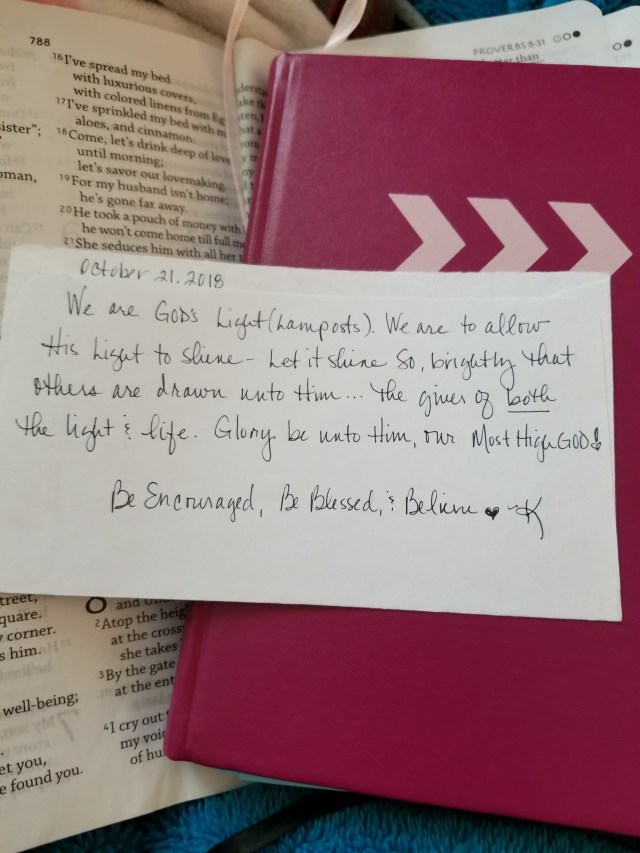 788
16 I've spread my bed
with luxurious covers,
with colored linens from Eg
17 I've sprinkled my bed with m
aloes, and cinnamon.
18 Come, let's drink deep of love
until morning;
let's savor our lovemaking.
19 For my husband isn't home;
he's gone far away.
20 He took a pouch of money with
he won't come home till full m
21 She seduces him with all her t
ister";
oman,
PROVERBS 8:31
than
October 21. 2018
We are GOD's Light (Lamposts). We are to allow
His Light to Shine - Let it shine So, brightly that
others are drawn unto Him... the giver of both
the light & life. Glory be unto Him, our Most High GOD!
Be Encouraged, Be Blessed, & Believe ♥ ~K
treet,
quare.
corner.
s him.
well-being;
et you,
e found you.
and
2 Atop the heig
at the cross
she takes
3 By the gate
at the ent
4 I cry out
my voic
of hu